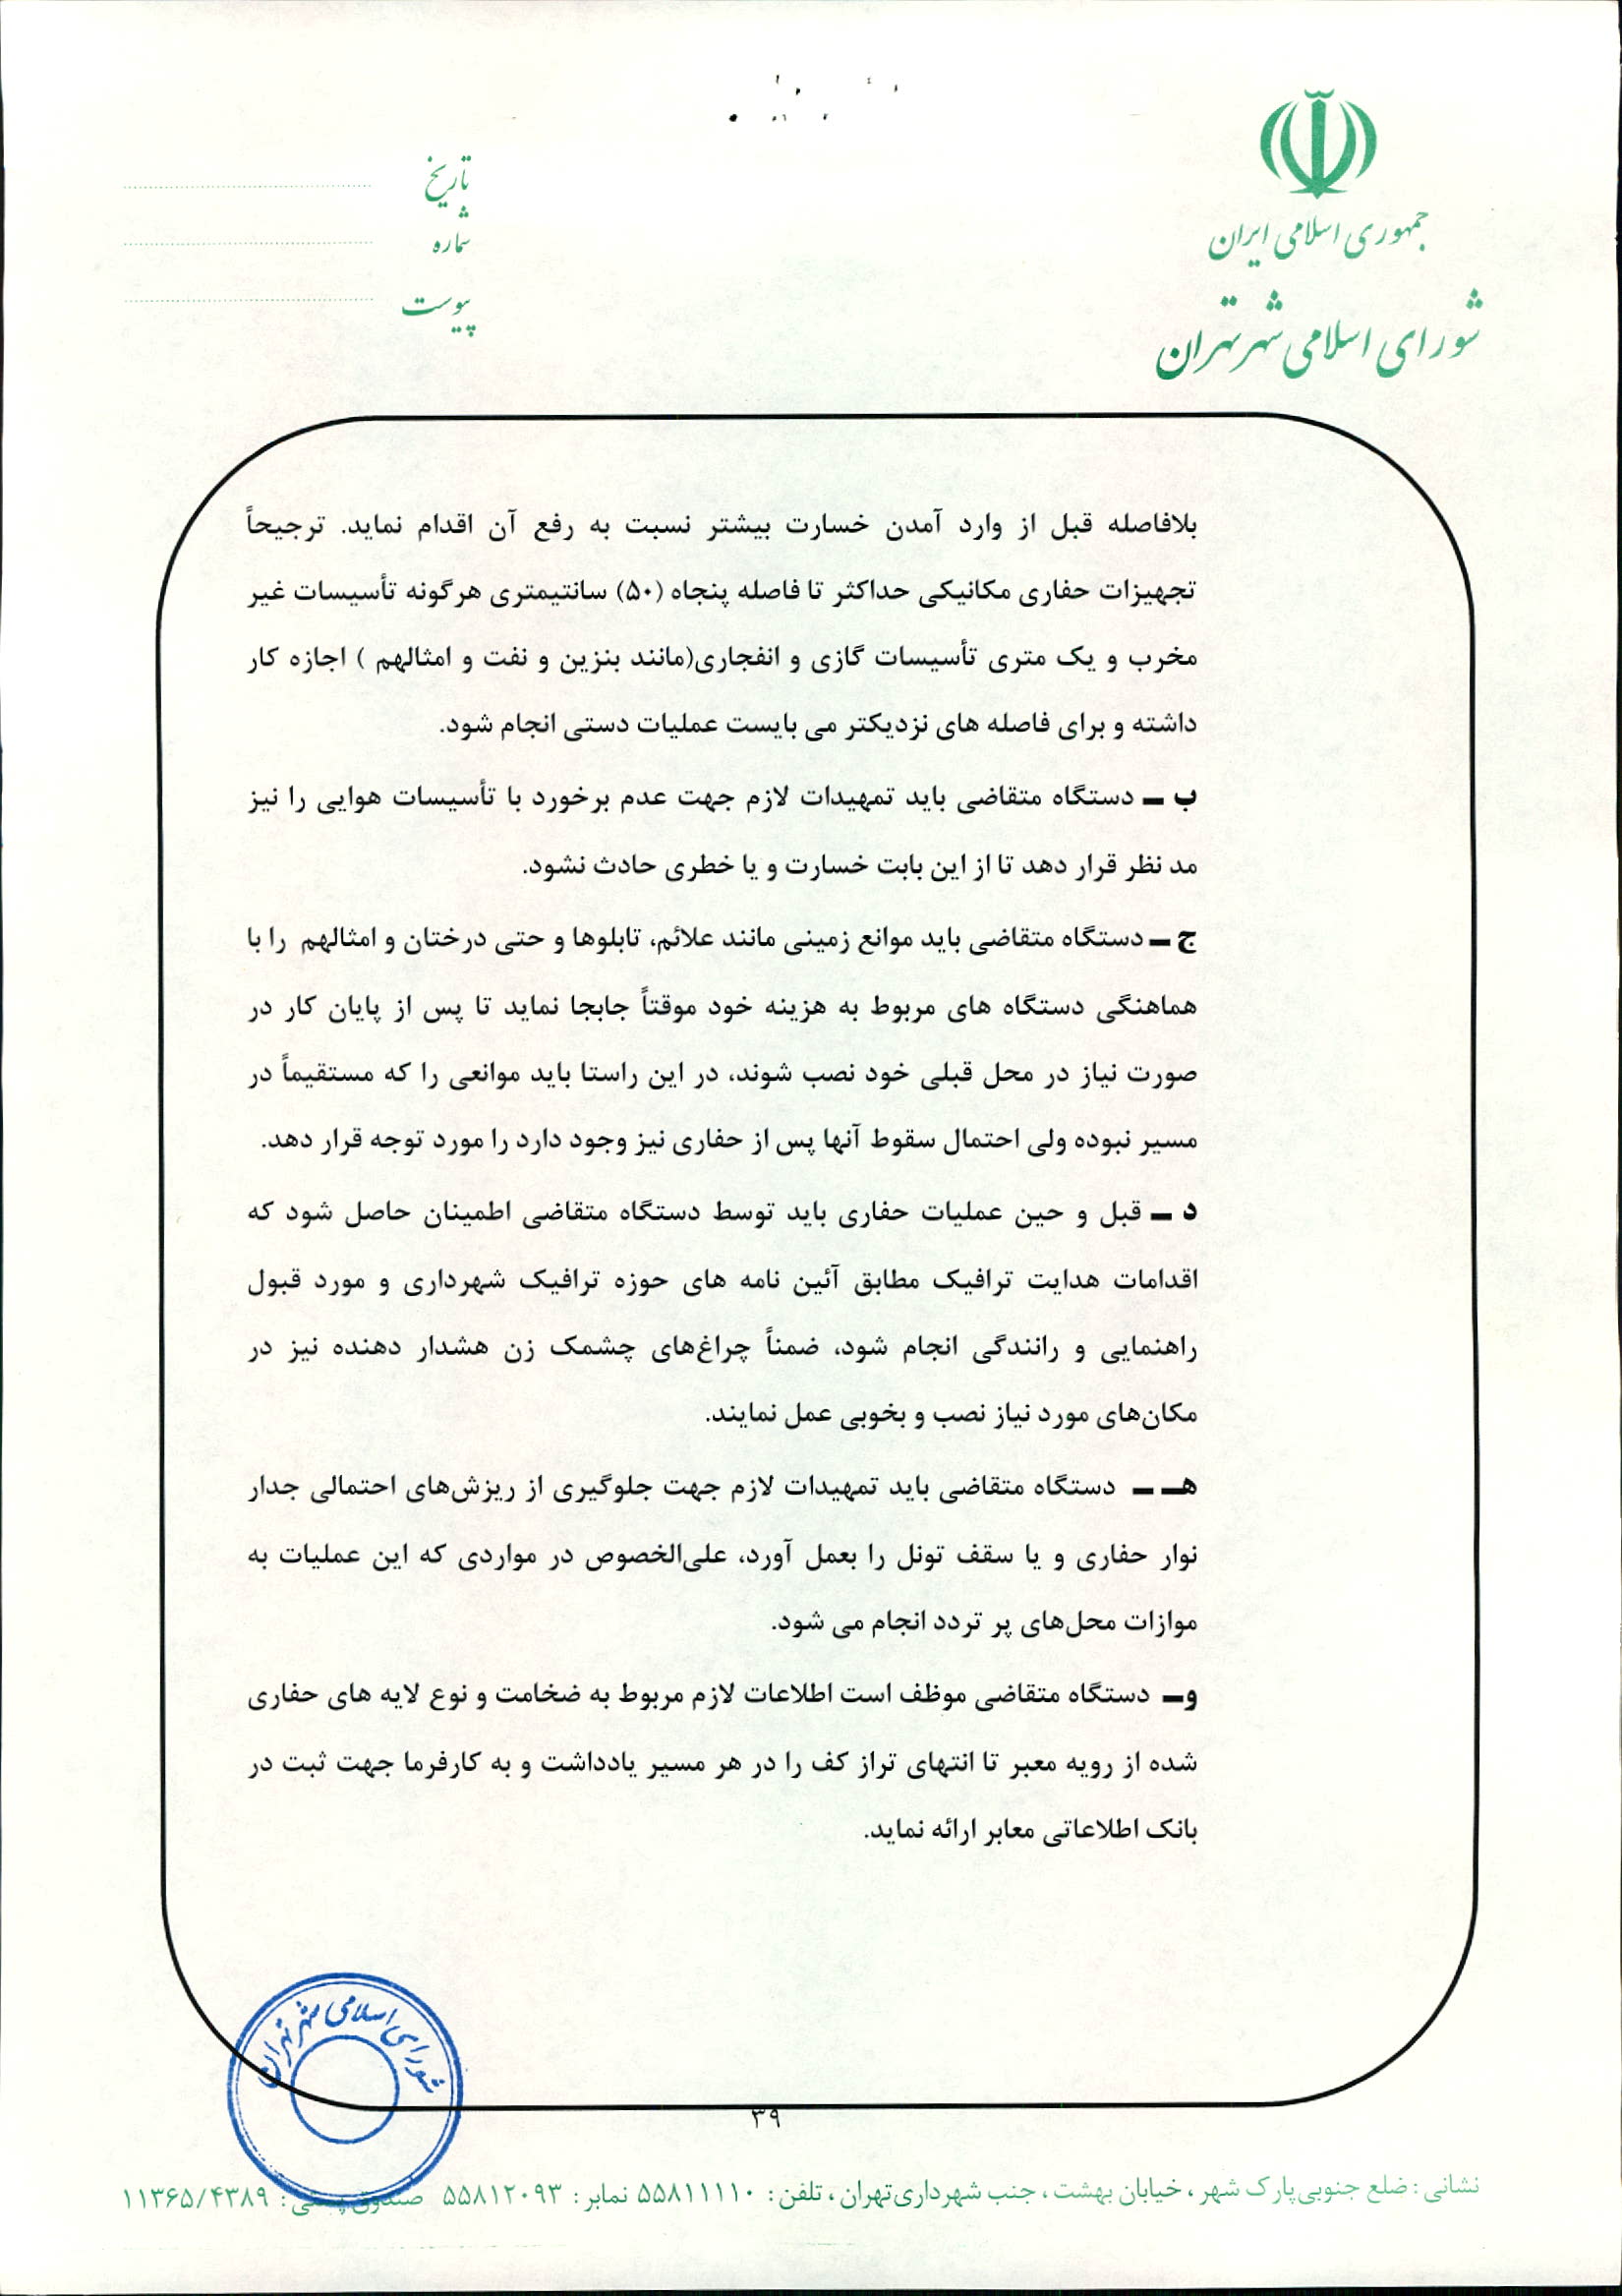 جمهوری اسلامی ایران
شورای اسلامی شهر تهران
تاریخ
شماره
پیوست
بلافاصله قبل از وارد آمدن خسارت بیشتر نسبت به رفع آن اقدام نماید. ترجیحاً
تجهیزات حفاری مکانیکی حداکثر تا فاصله پنجاه (۵۰) سانتیمتری هرگونه تأسیسات غیر
مخرب و یک متری تأسیسات گازی و انفجاری(مانند بنزین و نفت و امثالهم ) اجازه کار
داشته و برای فاصله های نزدیکتر می بایست عملیات دستی انجام شود.
ب ـ دستگاه متقاضی باید تمهیدات لازم جهت عدم برخورد با تأسیسات هوایی را نیز
مد نظر قرار دهد تا از این بابت خسارت و یا خطری حادث نشود.
ج ـ دستگاه متقاضی باید موانع زمینی مانند علائم، تابلوها و حتی درختان و امثالهم را با
هماهنگی دستگاه های مربوط به هزینه خود موقتاً جابجا نماید تا پس از پایان کار در
صورت نیاز در محل قبلی خود نصب شوند، در این راستا باید موانعی را که مستقیماً در
مسیر نبوده ولی احتمال سقوط آنها پس از حفاری نیز وجود دارد را مورد توجه قرار دهد.
د ـ قبل و حین عملیات حفاری باید توسط دستگاه متقاضی اطمینان حاصل شود که
اقدامات هدایت ترافیک مطابق آئین نامه های حوزه ترافیک شهرداری و مورد قبول
راهنمایی و رانندگی انجام شود، ضمناً چراغ‌های چشمک زن هشدار دهنده نیز در
مکان‌های مورد نیاز نصب و بخوبی عمل نمایند.
هـ ـ دستگاه متقاضی باید تمهیدات لازم جهت جلوگیری از ریزش‌های احتمالی جدار
نوار حفاری و یا سقف تونل را بعمل آورد، علی‌الخصوص در مواردی که این عملیات به
موازات محل‌های پر تردد انجام می شود.
وـ دستگاه متقاضی موظف است اطلاعات لازم مربوط به ضخامت و نوع لایه های حفاری
شده از رویه معبر تا انتهای تراز کف را در هر مسیر یادداشت و به کارفرما جهت ثبت در
بانک اطلاعاتی معابر ارائه نماید.
شورای اسلامی شهر تهران
۳۹
نشانی : ضلع جنوبی پارک شهر ، خیابان بهشت ، جنب شهرداری تهران ، تلفن : ۵۵۸۱۱۱۱۰ نمابر : ۵۵۸۱۲۰۹۳ صندوق پستی : ۱۱۳۶۵/۴۳۸۹